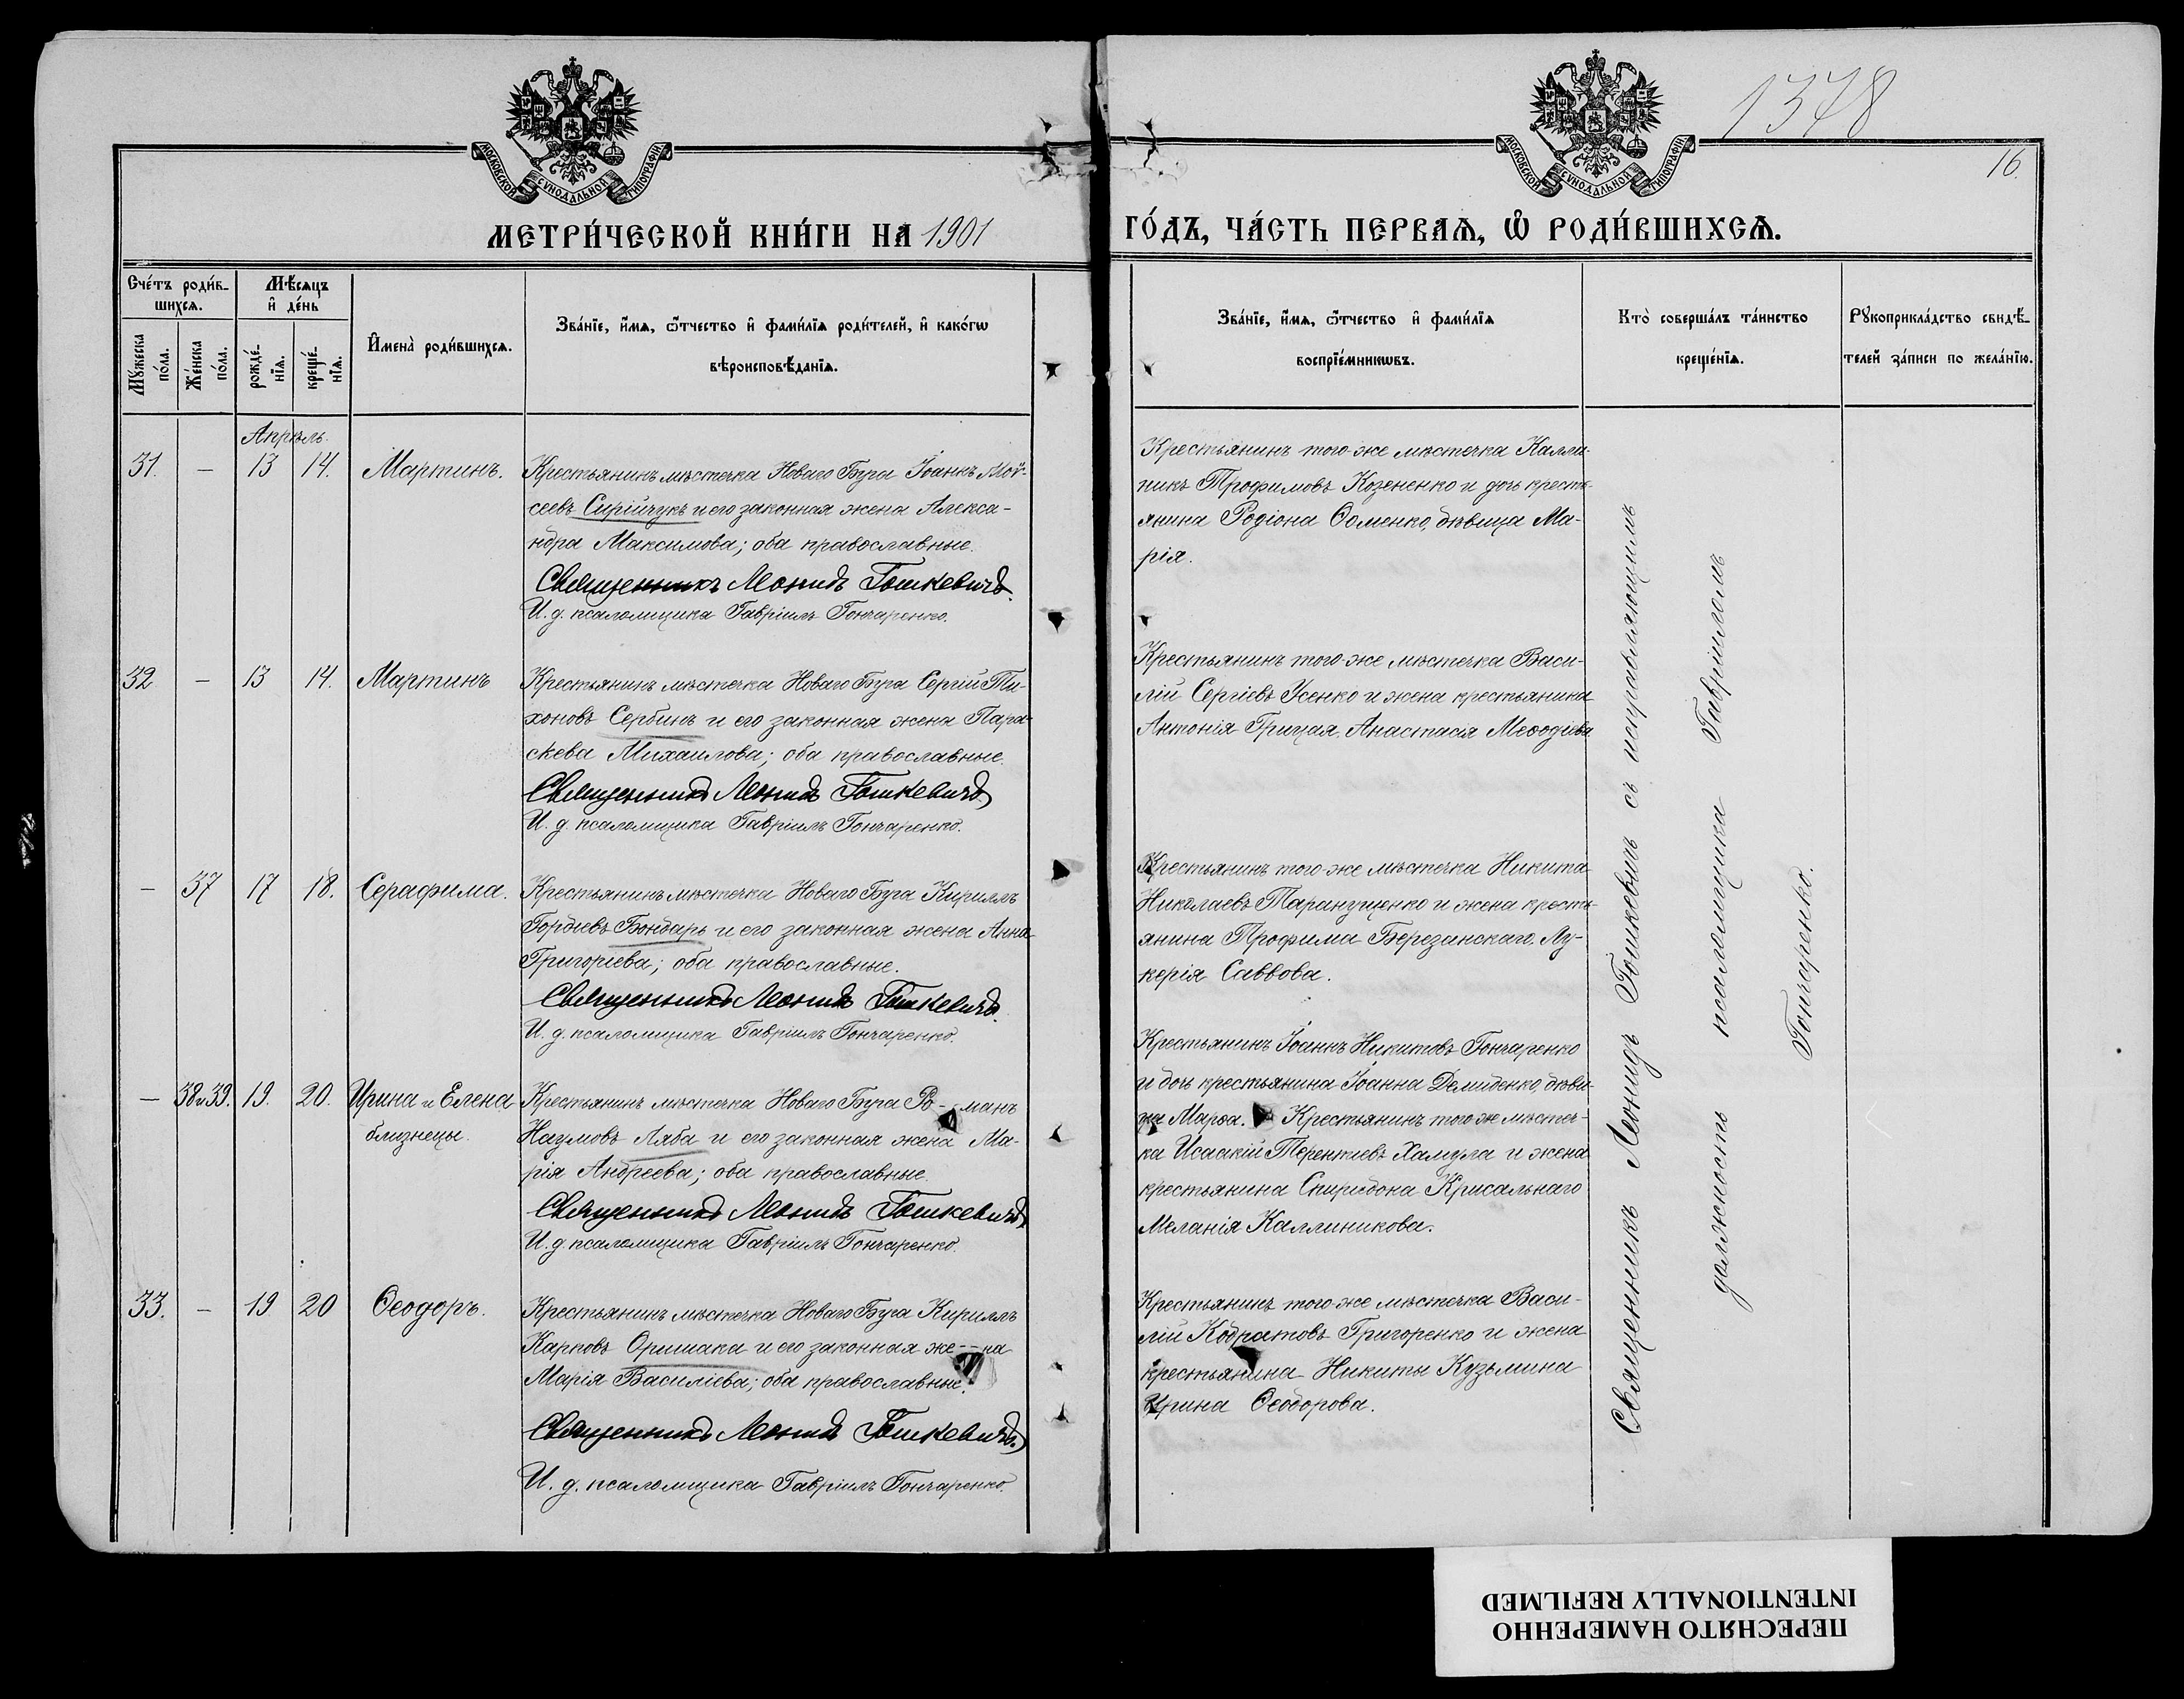 1378
16.
МОСКОВСКОЙ СѴНОДАЛЬНОЙ ТИПОГРАФІИ
МОСКОВСКОЙ СѴНОДАЛЬНОЙ ТИПОГРАФІИ
МЕТРИ́ЧЕСКОЙ КНИ́ГИ НА 1901
ГО́ДЪ, ЧА́СТЬ ПЕРВАѦ, Ѡ҆ РОДИ́ВШИХСѦ.
Сче́тъ роди́в-
шихсѧ.
Мꙋ́жеска по́ла.
Же́нска по́ла.
Мѣ́сѧцъ
и҆ де́нь
рожде́-
нїѧ.
креще́-
нїѧ.
И҆мена̀ роди́вшихсѧ.
Зва́нїе, и҆́мѧ, ѻ҆́тчество и҆ фами́лїѧ роди́телей, и҆ како́гѡ
вѣроисповѣ́данїѧ.
Зва́нїе, и҆́мѧ, ѻ҆́тчество и҆ фами́лїѧ
воспрїе́мникѡвъ.
Кто̀ соверша́лъ та́инство
креще́нїѧ.
Рꙋкоприкла́дство свидѣ́-
телей за́писи по жела́нїю.
Апрѣль.
31. — 13 14. Мартинъ.
Крестьянинъ мѣстечка Новаго Буга Іоаннъ Мои-
сеевъ Сирійчукъ и его законная жена Алекса-
ндра Максимова; оба православные.
Священникъ Леонидъ Гошкевичъ.
И. д. псаломщика Гавріилъ Гончаренко.
Крестьянинъ того-же мѣстечка Калли-
никъ Трофимовъ Козененко и дочь кресть-
янина Родіона Ѳоменко, дѣвица Ма-
рія.
32 — 13 14. Мартинъ
Крестьянинъ мѣстечка Новаго Буга Сергій Ти-
хоновъ Сербинъ и его законная жена Пара-
скева Михаилова; оба православные.
Священникъ Леонидъ Гошкевичъ
И. д. псаломщика Гавріилъ Гончаренко.
Крестьянинъ того-же мѣстечка Васи-
лій Сергіевъ Усенко и жена крестьянина
Антонія Грицая, Анастасія Меѳодіева
— 37 17 18. Серафима.
Крестьянинъ мѣстечка Новаго Буга Кириллъ
Гордіевъ Бондарь и его законная жена Анна
Григоріева; оба православные.
Священникъ Леонидъ Гошкевичъ.
И. д. псаломщика Гавріилъ Гончаренко.
Крестьянинъ того-же мѣстечка Никита
Николаевъ Таранущенко и жена кресть-
янина Трофима Березанскаго, Лу-
керія Саввова.
— 38 и 39. 19. 20. Ирина и Елена
близнецы.
Крестьянинъ мѣстечка Новаго Буга Ро-манъ
Наумовъ Ляба и его законная жена Ма-
рія Андреева; оба православные.
Священникъ Леонидъ Гошкевичъ
И. д. псаломщика Гавріилъ Гончаренко.
Крестьянинъ Іоаннъ Никитовъ Гончаренко
и дочь крестьянина Іоанна Демиденко, дѣви-
ца Марѳа. Крестьянинъ того-же мѣстеч-
ка Исаакій Терентіевъ Хамула и жена
крестьянина Спиридона Крисальнаго
Меланія Каллиникова.
33. — 19. 20 Ѳеодоръ.
Крестьянинъ мѣстечка Новаго Буга Кириллъ
Карповъ Оришака и его законная же-на
Марія Василіева; оба православные.
Священникъ Леонидъ Гошкевичъ.
И. д. псаломщика Гавріилъ Гончаренко.
Крестьянинъ того-же мѣстечка Васи-
лій Кодратовъ Григоренко и жена
крестьянина Никиты Кузьмина
Ирина Ѳеодорова.
Священникъ Леонидъ Гошкевичъ съ исправляющимъ
должность псаломщика Гавріиломъ
Гончаренко.
ПЕРЕСНЯТО НАМЕРЕННО
INTENTIONALLY REFILMED